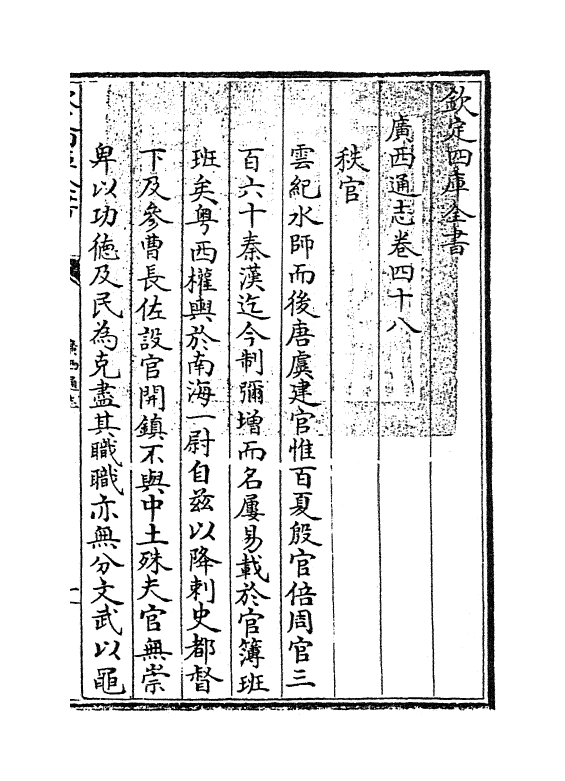 欽定四庫全書
廣西通志卷四十八
秩官
雲紀水師而後唐虞建官惟百夏殷官倍周官三
百六十秦漢迄今制彌增而名屢易載於官簿班
班矣粤西權輿於南海一尉自兹以降刺史都督
下及參曹長佐設官開鎮不與中土殊夫官無崇
卑以功徳及民為克盡其職職亦無分文武以黽
廣西通志